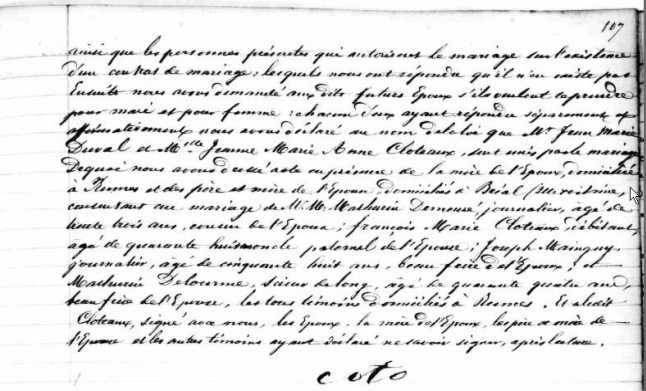 107
ainsi que les personnes présentes qui autorisent le mariage sur l'existence
d'un contrat de mariage ; lesquels nous ont répondu qu'il n'en existe pas
Ensuite nous avons demandé aux dits futurs Epoux s'ils veulent se prendre
pour mari et pour femme : chacun d'eux ayant répondu séparément et
affirmativement nous avons déclaré au nom de la loi que Mr Jean Marie
Duval et Mlle Jeanne Marie Anne Cloteaux, sont unis par le mariage
De quoi nous avons dressé acte en présence de la mère de l'Epoux, domiciliée
à Rennes et des père et mère de l'Epouse, domiciliés à
consentant au mariage de M.M. Mathurin journalier, âgé de
trente trois ans, cousin de l'Epoux ; françois Marie Cloteaux, débitant,
âgé de quarante huit oncle paternel de l'Epouse ; Joseph Mainguy
journalier, âgé de cinquante huit ans, beau frère de l'Epoux ; et
Mathurin Delourme, scieur de long, âgé de quarante quatre ans,
beau frère de l'Epouse, les tous témoins domiciliés à Rennes. Et le dit
Cloteaux, signé avec nous, les Epoux, la mère de l'Epoux, les père et mère de
l'Epouse et les autres témoins ayant déclaré ne savoir signer, après lecture.